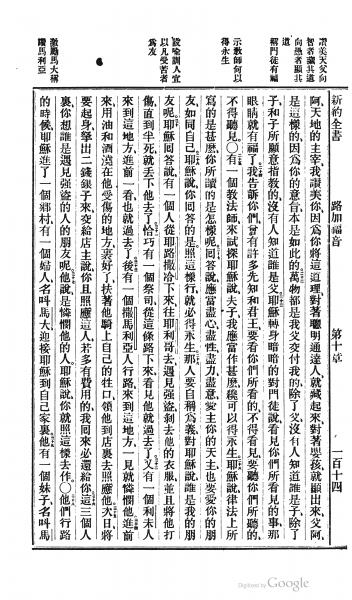 新約全書　路加福音　第十章　一百十四
讚美天父向
智者藏其道
向愚者顯其
道
稱門徒有福
示教師何以
得永生
設喻訓人宜
以凡受苦者
為友
激勵馬大稱
讚馬利亞
阿天地的主宰我讚美你因為你將這道理對著聰明通達人就藏起來對著嬰孩就顯出來父阿
是這樣的因為你的意旨本是如此的萬物都是我父交付我的除了父沒有人知道誰是子除了
子和子所願意指教的沒有人知道誰是父耶穌轉身暗暗的對門徒說看見你們所看見的事那
眼睛就有福了我告訴你們曾有許多先知和君王要看你們所看的不得看見要聽你們所聽的
不得聽見〇有一個教法師來試探耶穌說夫子我應當作甚麼纔可以得永生耶穌說律法上所
寫的是甚麼你所讀的是怎樣呢回答說應當盡心盡性盡力盡意愛主你的天主也要愛你的朋
友如同自己耶穌說你回答的是照這樣行就必得永生那人要自稱為義對耶穌說誰是我的朋
友呢耶穌回答說有一個人從耶路撒冷下來往耶利哥去遇見強盜剝去他的衣服並且將他打
傷直到半死就丟下他去了恰巧有一個祭司從這條路下來看見他就過去了又有一個利未人
來到這地方進前一看也就過去了後有一個撒馬利亞人行路來到這地方一見就憐憫他進前
來用油和酒澆在他受傷的地方裹好了扶著他騎上自己的牲口領他到店裏去照應他次日將
要起身拏出二錢銀子來交給店主說你且照應這人若多有費用的我回來必還給你這三個人
裏你想誰是遇見強盜的人的朋友呢他說是憐憫他的人耶穌說你就照這樣去作〇他們行路
的時候耶穌進了一個鄉村有一個婦人名叫馬大迎接耶穌到自己家裏他有一個妹子名叫馬
Digitized by Google